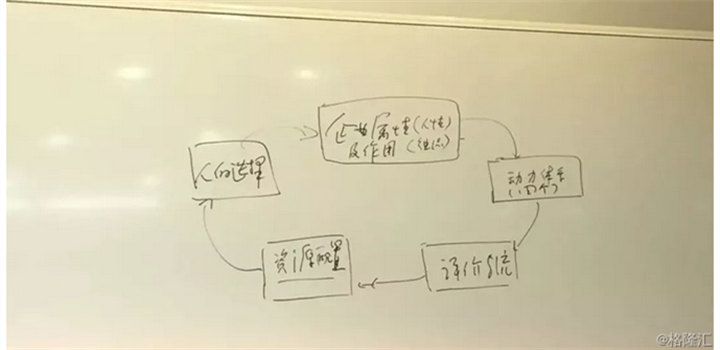 企业属性(人性)
及作用
动力体系
评价系统
资源配置
人的选择
@格隆汇